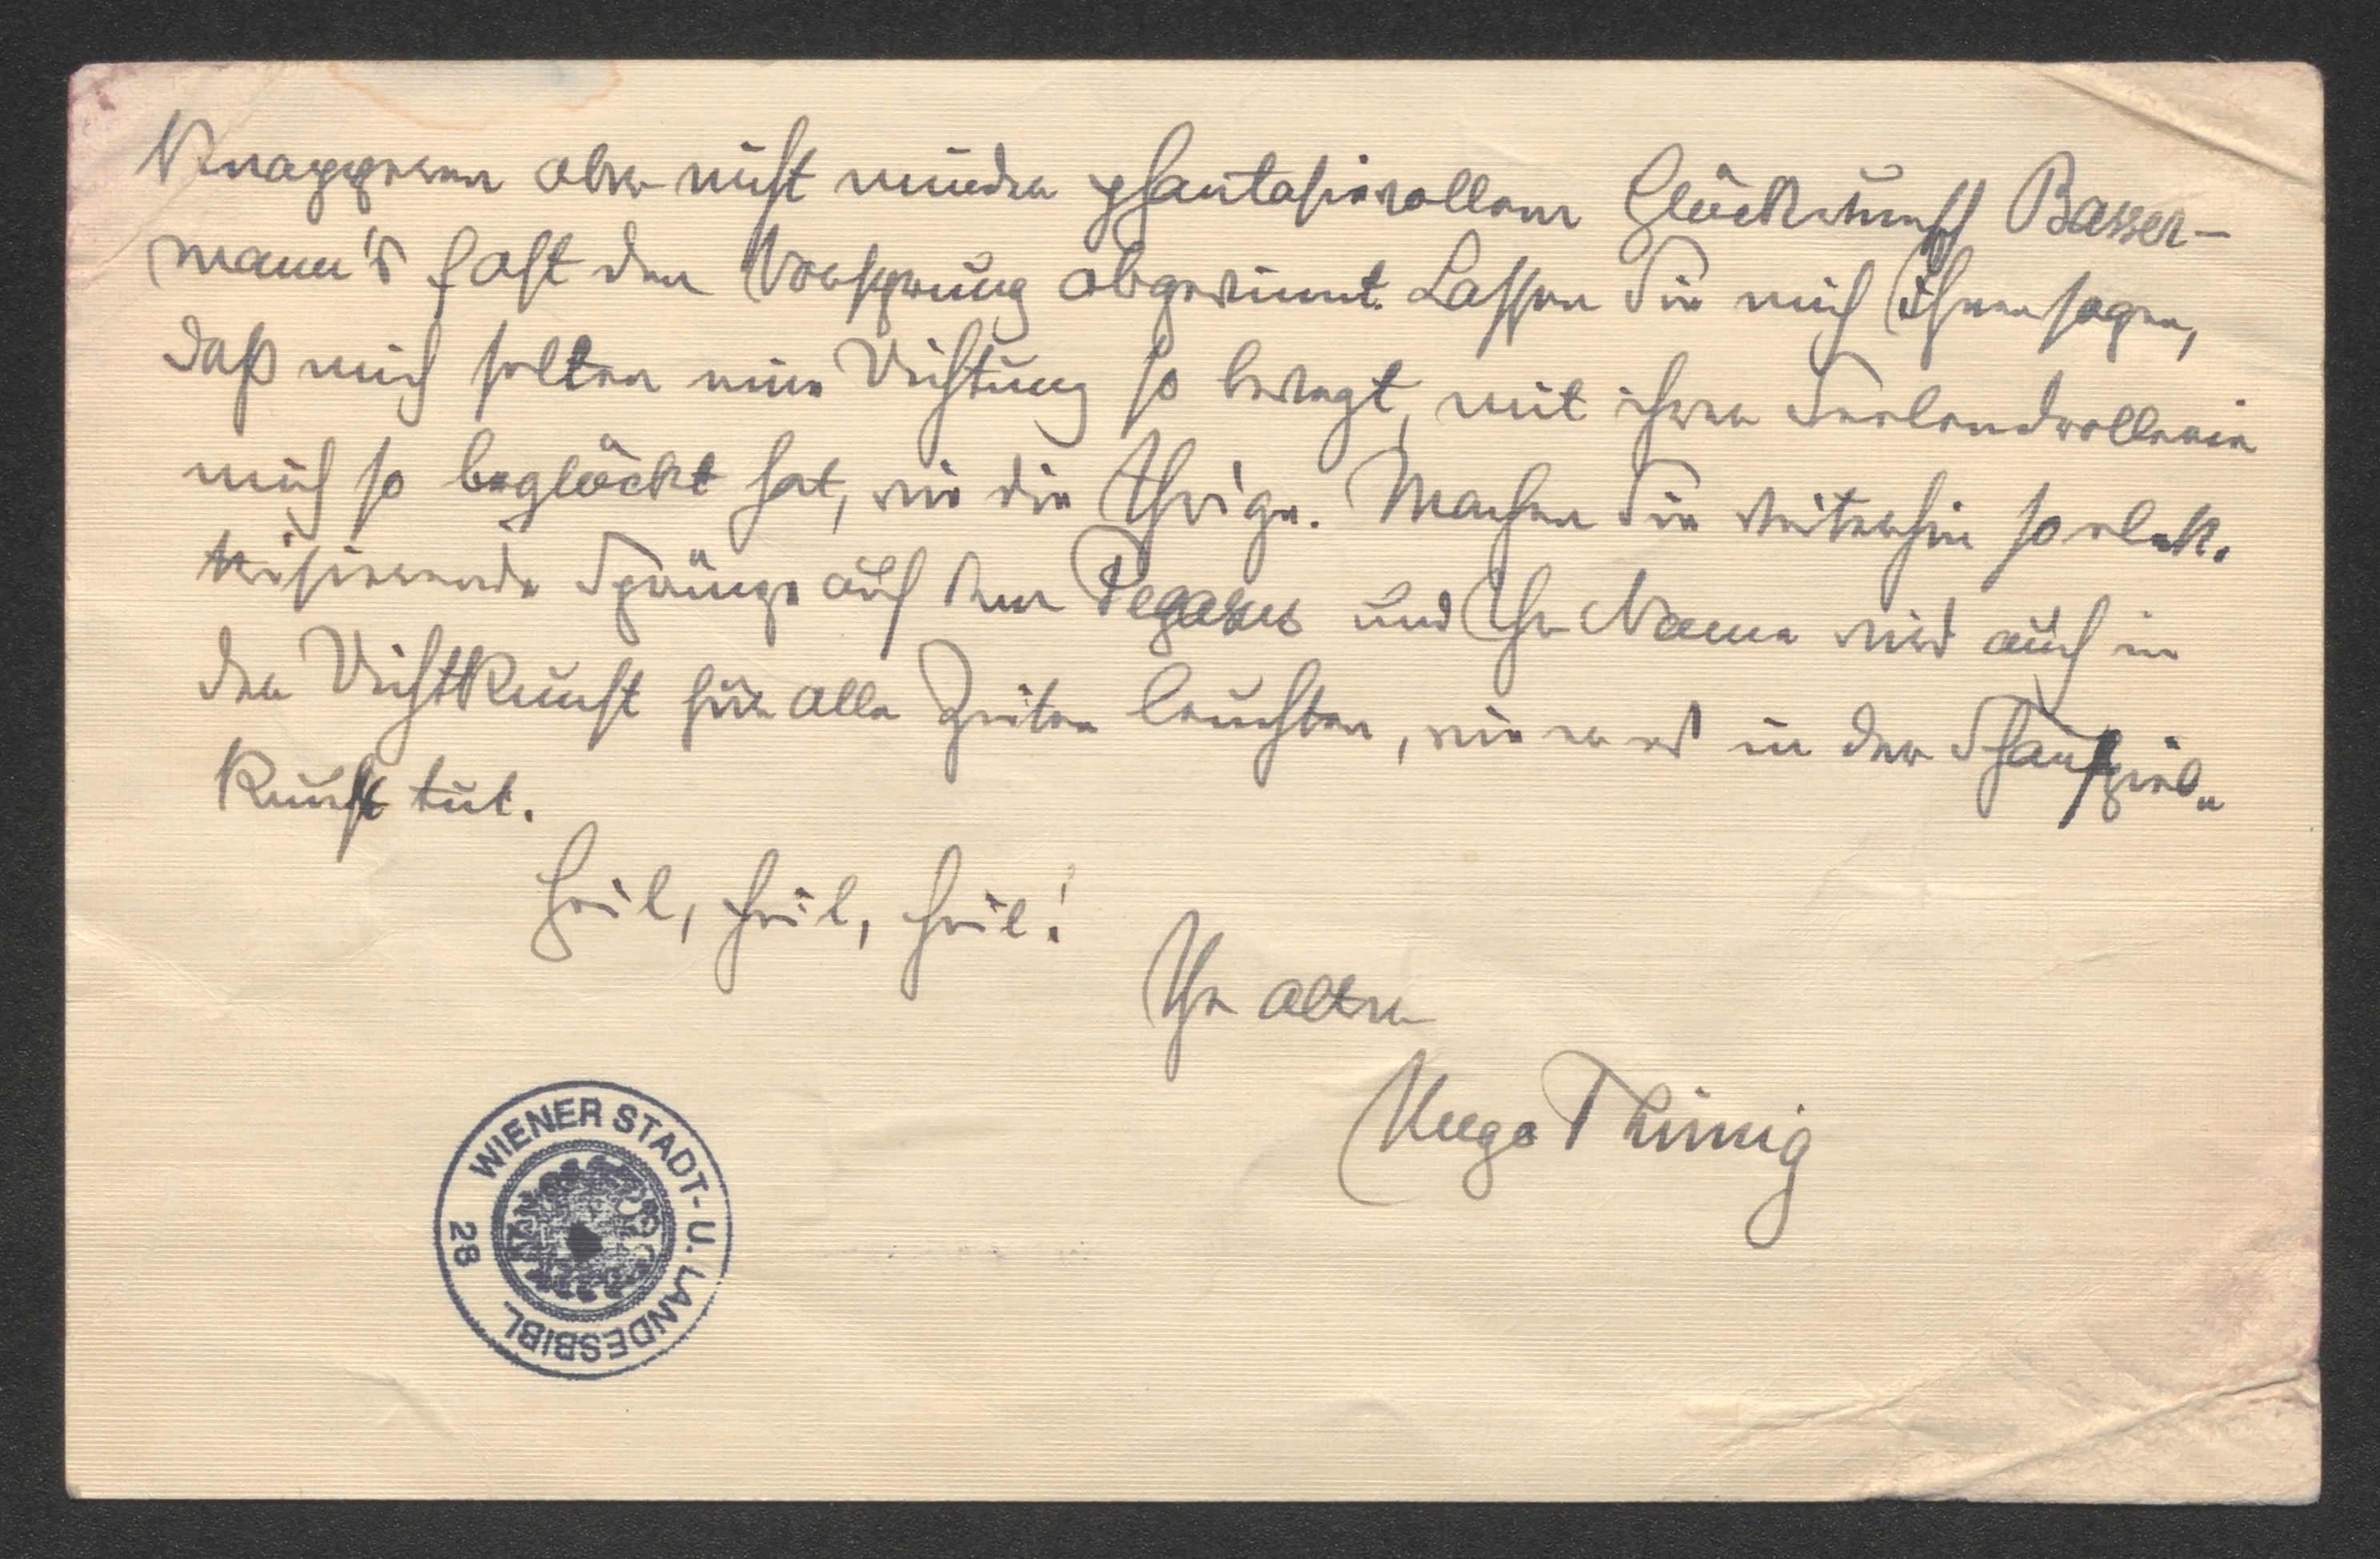 knapperen aber nicht minder phantasievollem Glückwunsch Basser-
mann's fast den Vorsprung abgewinnt. Lassen Sie mich Ihnen sagen,
daß mich selten eine Dichtung so bewegt, mit ihrer Vollendung
mich so beglückt hat, wie die Ihrige. Machen Sie weiterhin so elek-
trisierende Sprünge auf dem Pegasus und Ihr Name wird auch in
der Dichtkunst für alle Zeiten leuchten, wie er es in der Schauspiel-
kunst tut.
Heil, heil, heil!
Ihr alter
Hugo Thimig
WIENER STADT- U. LANDESBIBL.
28